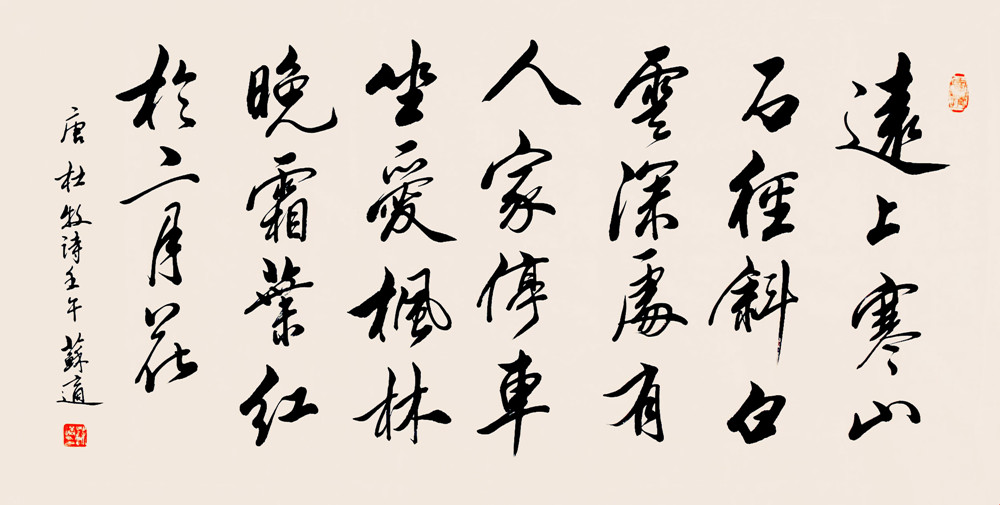 遠上寒山
石徑斜白
雲深處有
人家停車
坐愛楓林
晚霜葉紅
於二月花
唐杜牧詩壬午蘇適